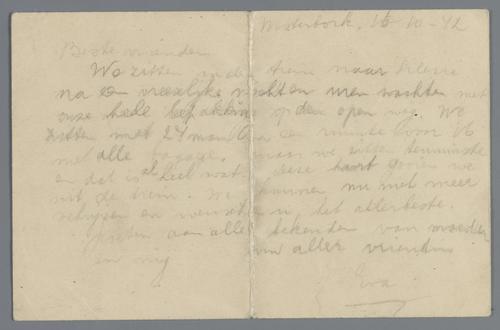 Westerbork, 16-10-42
Beste vrienden
We zitten in den trein naar Silezië
na een vreeselijke nachten uren wachten met
onze hele bepakking op den open weg. We
zitten met 24 man in een ruimte voor 16
met alle bagage. maar we zitten tenminste
en dat is al heel wat. deze kaart gooien we
uit de trein. We kunnen nu niet meer
schrijven en wensen u het allerbeste.
groeten aan alle bekenden van moeder
en mij uw aller vriendin
Eva